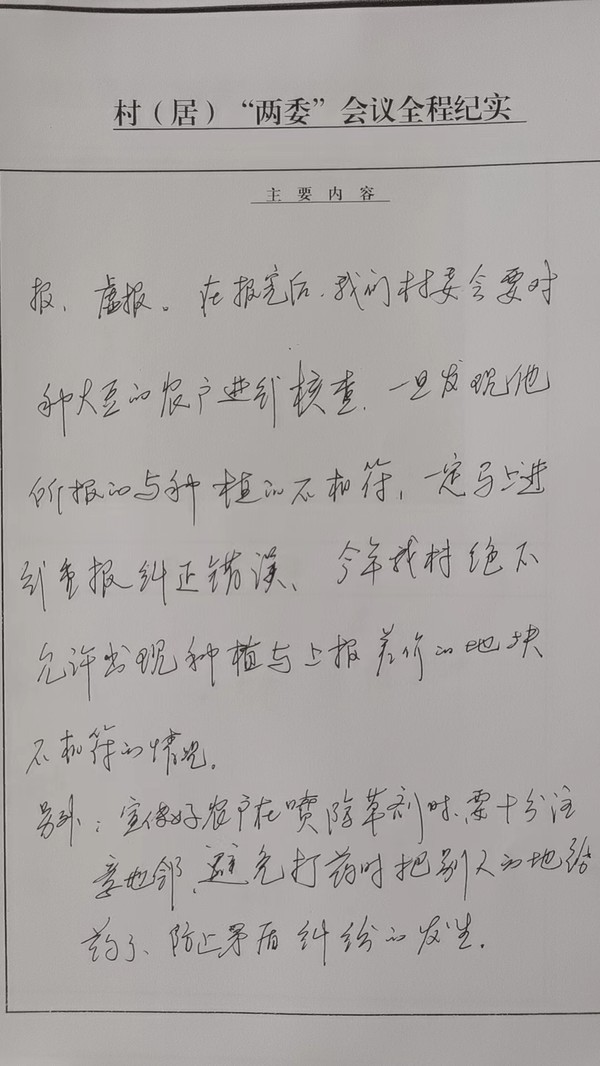 村（居）“两委”会议全程纪实
主要内容
报、虚报。在报完后，我们村委会要对
种大豆的农户进行核查，一旦发现他
所报的与种植的不相符，一定马上进
行重报纠正错误、今年我村绝不
允许出现种植与上报差价的地块
不相符的情况。
另外：宣传好农户在喷除草剂时，要十分注
意地邻，避免打药时把别人的地给
药了、防止矛盾纠纷的发生。